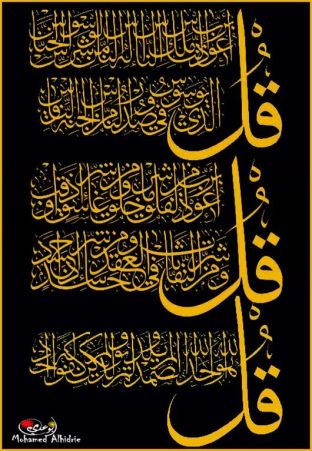 قل أعوذ برب الناس ملك الناس إله الناس من شر الوسواس الخناس
الذي يوسوس في صدور الناس من الجنة والناس
قل أعوذ برب الفلق من شر ما خلق ومن شر غاسق إذا وقب
ومن شر النفاثات في العقد ومن شر حاسد إذا حسد
قل هو الله أحد الله الصمد لم يلد ولم يولد ولم يكن له كفوا أحد
أبو عدي
Mohamed Alhidrie